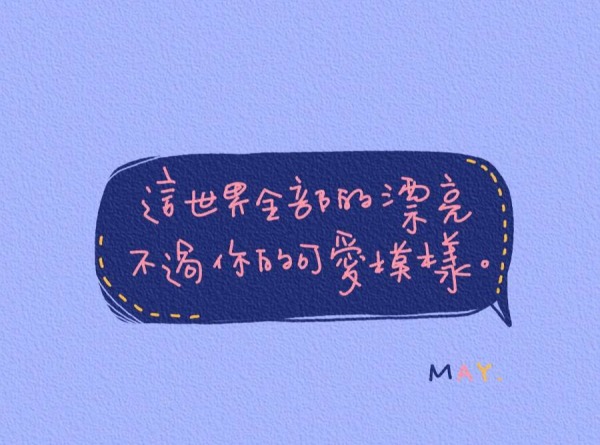 這世界全部的漂亮
不過你的可愛模樣。
MAY.